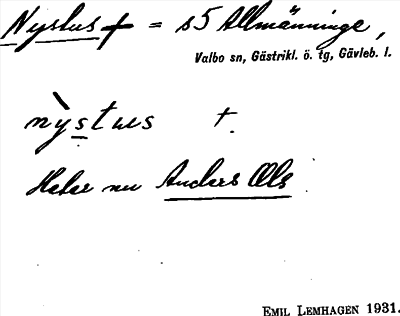 Nystus † = s5 Allmänninge,
Valbo sn, Gästrikl. ö. tg, Gävleb. l.
nỳstus †.
Heter nu Anders Ols
EMIL LEMHAGEN 1931.